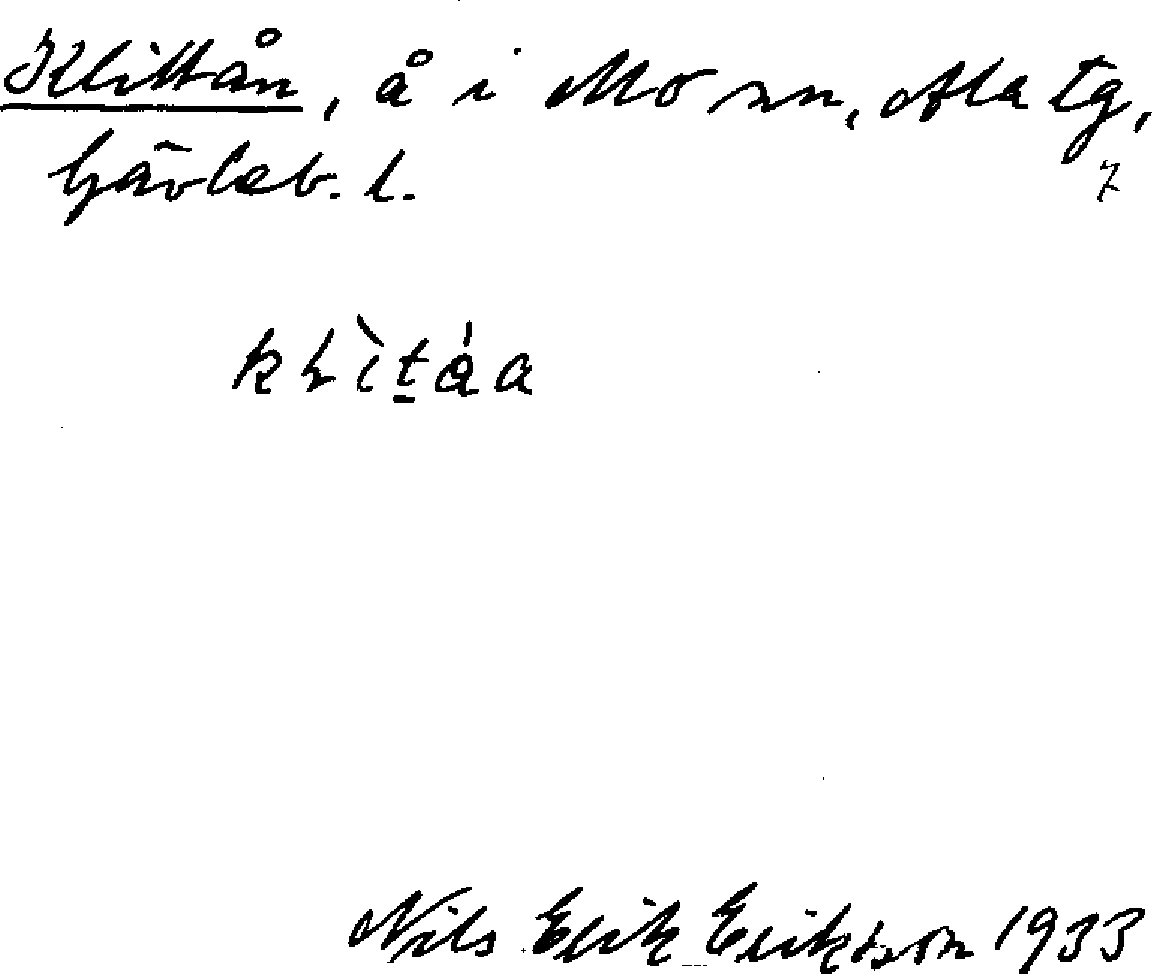 Klittån, å i Mo sn, Ala tg,
Gävleb. l.
7
Nils Erik Erikson 1933